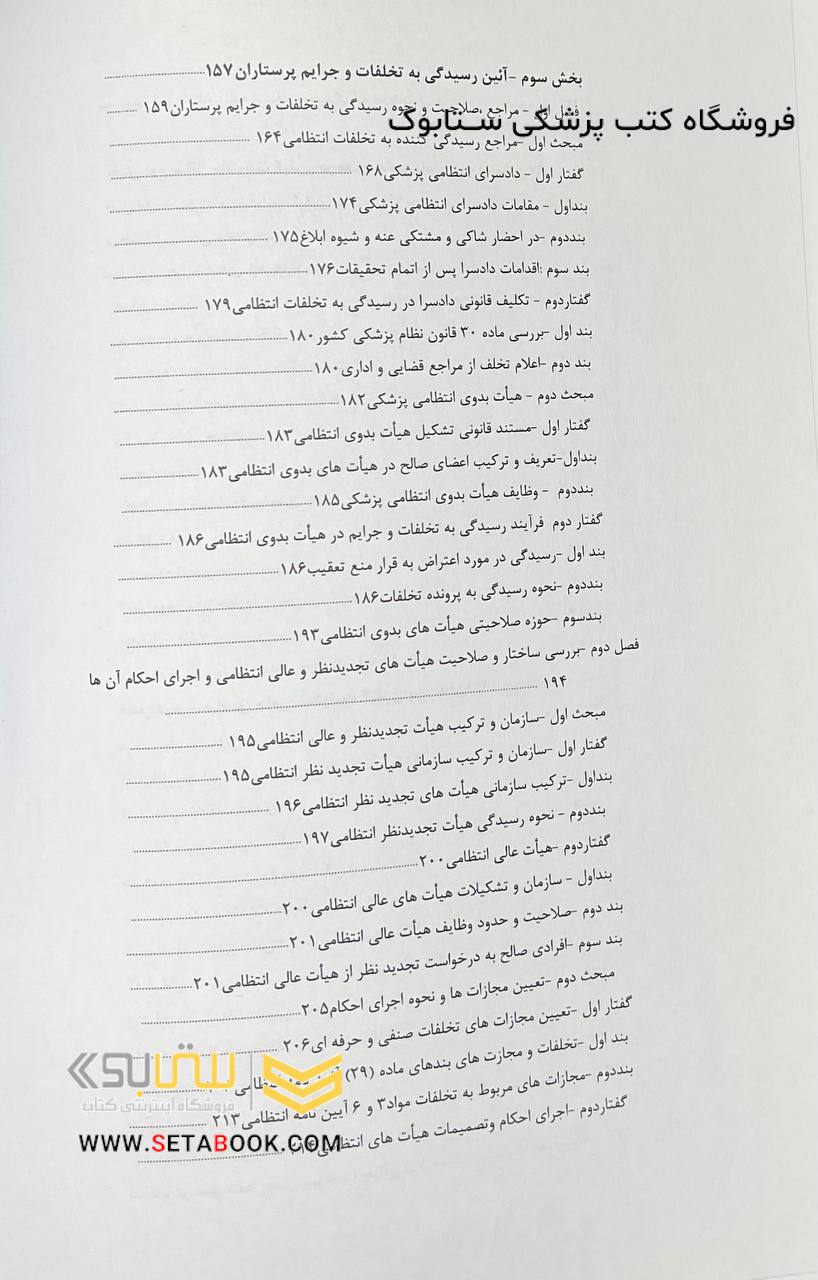 بخش سوم -آئین رسیدگی به تخلفات و جرایم پرستاران۱۵۷
فصل اول - مراجع ،صلاحیت و نحوه رسیدگی به تخلفات و جرایم پرستاران۱۵۹
فروشگاه کتب پزشکی ستابوک
مبحث اول -مراجع رسیدگی کننده به تخلفات انتظامی۱۶۴
گفتار اول - دادسرای انتظامی پزشکی۱۶۸
بنداول - مقامات دادسرای انتظامی پزشکی۱۷۴
بنددوم -در احضار شاکی و مشتکی عنه و شیوه ابلاغ۱۷۵
بند سوم :اقدامات دادسرا پس از اتمام تحقیقات۱۷۶
گفتاردوم - تکلیف قانونی دادسرا در رسیدگی به تخلفات انتظامی۱۷۹
بند اول -بررسی ماده ۳۰ قانون نظام پزشکی کشور۱۸۰
بند دوم -اعلام تخلف از مراجع قضایی و اداری۱۸۰
مبحث دوم - هیأت بدوی انتظامی پزشکی۱۸۲
گفتار اول -مستند قانونی تشکیل هیأت بدوی انتظامی۱۸۳
بنداول-تعریف و ترکیب اعضای صالح در هیأت های بدوی انتظامی۱۸۳
بنددوم - وظایف هیأت بدوی انتظامی پزشکی۱۸۵
گفتار دوم فرآیند رسیدگی به تخلفات و جرایم در هیأت بدوی انتظامی۱۸۶
بند اول -رسیدگی در مورد اعتراض به قرار منع تعقیب۱۸۶
بنددوم -نحوه رسیدگی به پرونده تخلفات۱۸۶
بندسوم -حوزه صلاحیتی هیأت های بدوی انتظامی۱۹۳
فصل دوم -بررسی ساختار و صلاحیت هیأت های تجدیدنظر و عالی انتظامی و اجرای احکام آن ها
۱۹۴
مبحث اول -سازمان و ترکیب هیأت تجدیدنظر و عالی انتظامی۱۹۵
گفتار اول -سازمان و ترکیب سازمانی هیأت تجدید نظر انتظامی۱۹۵
بنداول -ترکیب سازمانی هیأت های تجدید نظر انتظامی۱۹۶
بنددوم - نحوه رسیدگی هیأت تجدیدنظر انتظامی۱۹۷
گفتاردوم -هیأت عالی انتظامی۲۰۰
بنداول - سازمان و تشکیلات هیأت های عالی انتظامی۲۰۰
بند دوم -صلاحیت و حدود وظایف هیأت عالی انتظامی۲۰۱
بند سوم -افرادی صالح به درخواست تجدید نظر از هیأت عالی انتظامی۲۰۱
مبحث دوم -تعیین مجازات ها و نحوه اجرای احکام۲۰۵
گفتار اول -تعیین مجازات های تخلفات صنفی و حرفه ای۲۰۶
بند اول -تخلفات و مجازت های بندهای ماده (۲۹) انتظامی
بنددوم -مجازات های مربوط به تخلفات مواد۳ و ۶ آیین نامه انتظامی۲۱۳
گفتاردوم -اجرای احکام وتصمیمات هیأت های انتظامی
ستابوک
فروشگاه اینترنتی کتاب
WWW.SETABOOK.COM